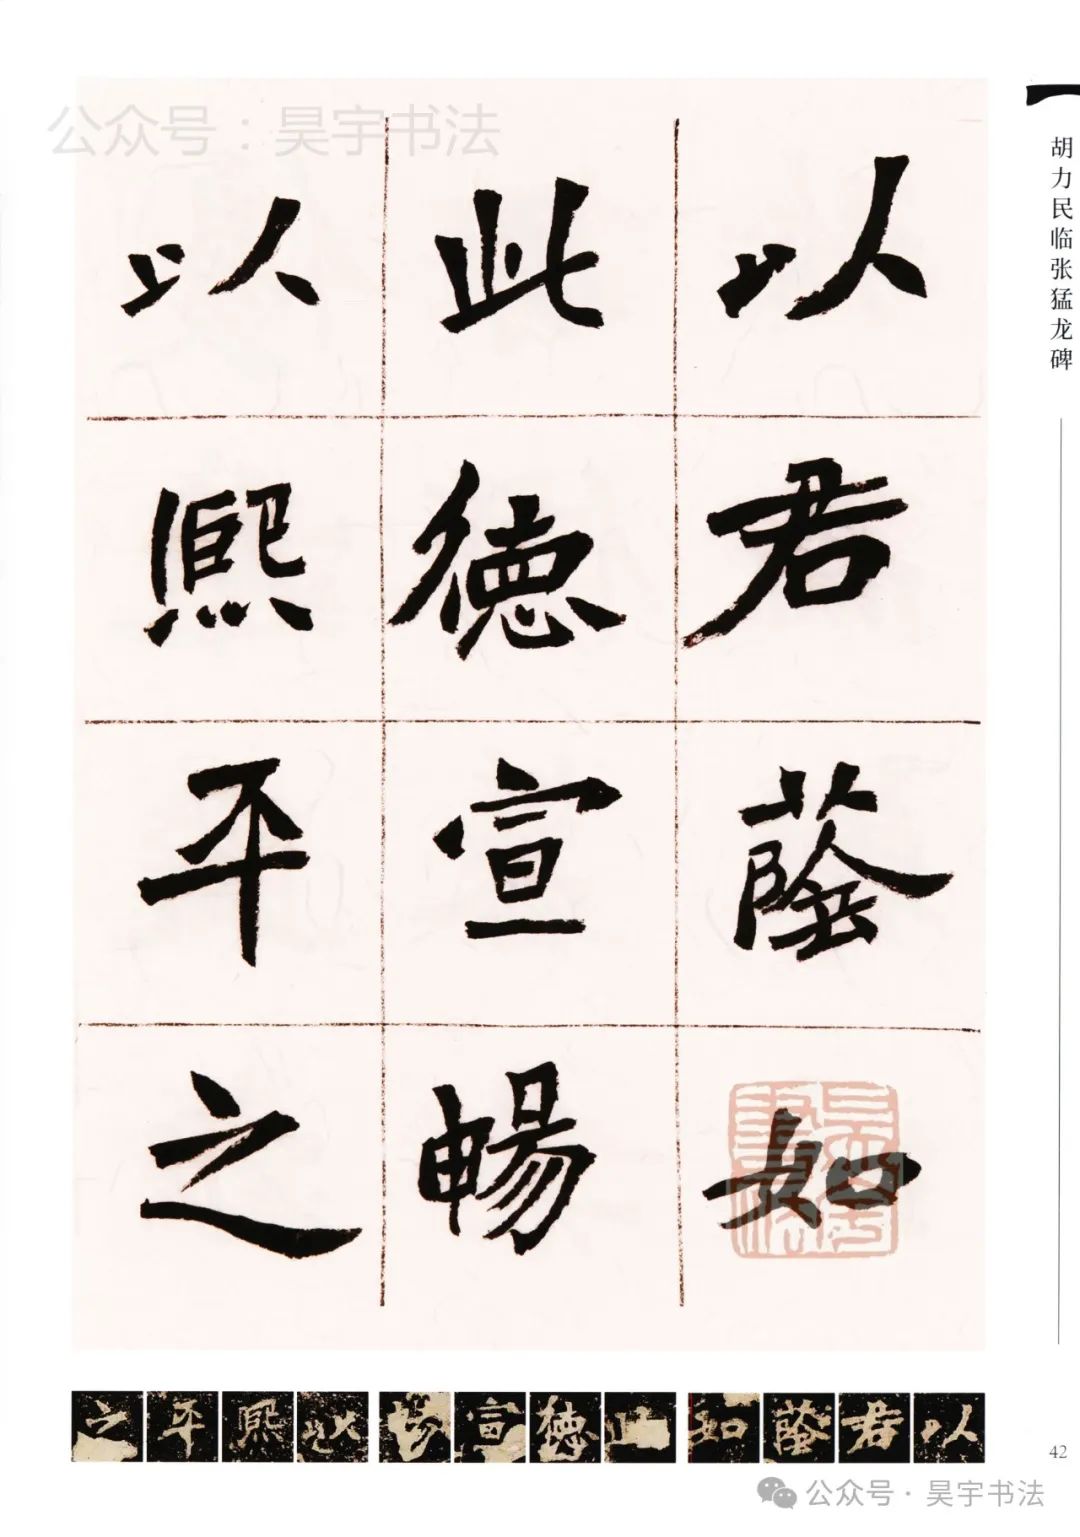 公众号：昊宇书法
胡力民临张猛龙碑
以君蔭如
此德宣暢
以熙平之
以君蔭如此德宣暢以熙平之
42
公众号·昊宇书法